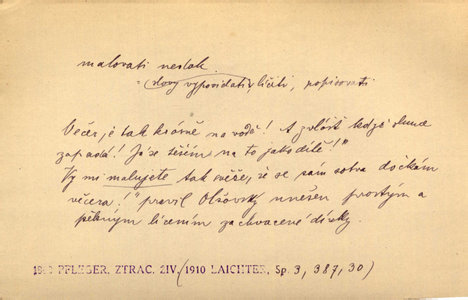 malovati nedok.
(slovy vypovídati), líčiti, popisovati
Večer, je tak krásně na vodě! A zvlášť když slunce
zapadá! Já se těším na to jako dítě!"
"Vy mi malujete tak svěže, že se sám sotva dočkám
večera!" pravil Olšovský unešen prostým a
pěkným líčením zachvacené dívky.
PFLEGER, ZTRAC. ŽIV. (1910 LAICHTER, Sp. 3, 387, 30)